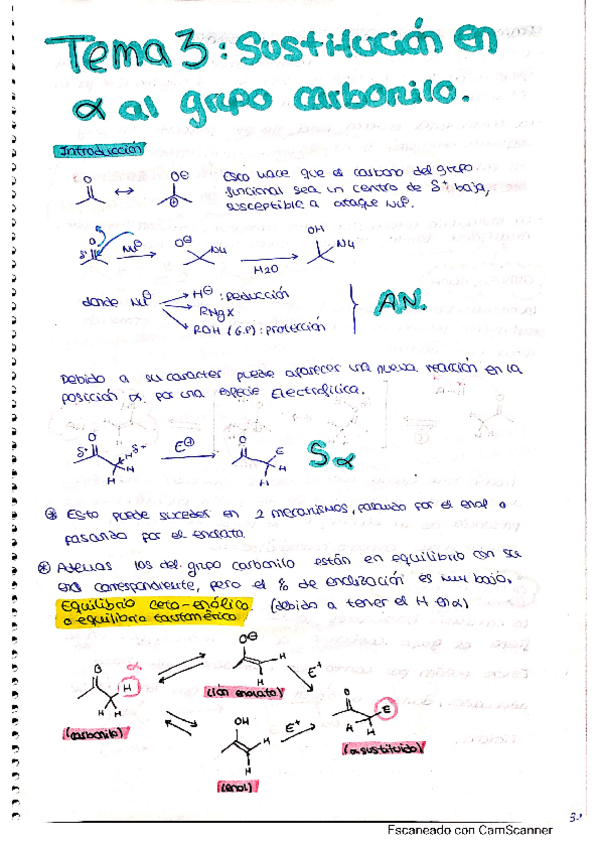 Tema 3: Sustitución en
α al grupo carbonilo.
Introducción
O
O⊖
⊕
Esto hace que el carbono del grupo
funcional sea un centro de δ+ baja,
susceptible a ataque Nu⊖.
O
δ+
Nu⊖
O⊖
Nu
H2O
OH
Nu
donde Nu⊖
H⊖: reducción
RMgX
ROH (G.P): protección
A.N.
Debido a su caracter puede aparecer una nueva reacción en la
posición α por una especie electrofílica.
O
δ+
H δ+
H
H
E⊕
O
E
H
H
Sα
* Esto puede suceder en 2 mecanismos, pasando por el enol o
pasando por el enolato.
* Además los del grupo carbonilo están en equilibrio con su
enol correspondiente, pero el % de enolización es muy bajo.
Equilibrio ceto-enólico (debido a tener el H en α)
o equilibrio tautomérico
O
α
H
H
H
(carbonilo)
O⊖
H
H
(ión enolato)
E+
OH
H
H
(enol)
E+
O
E
H
H
(α sustituido)
3.1
Escaneado con CamScanner